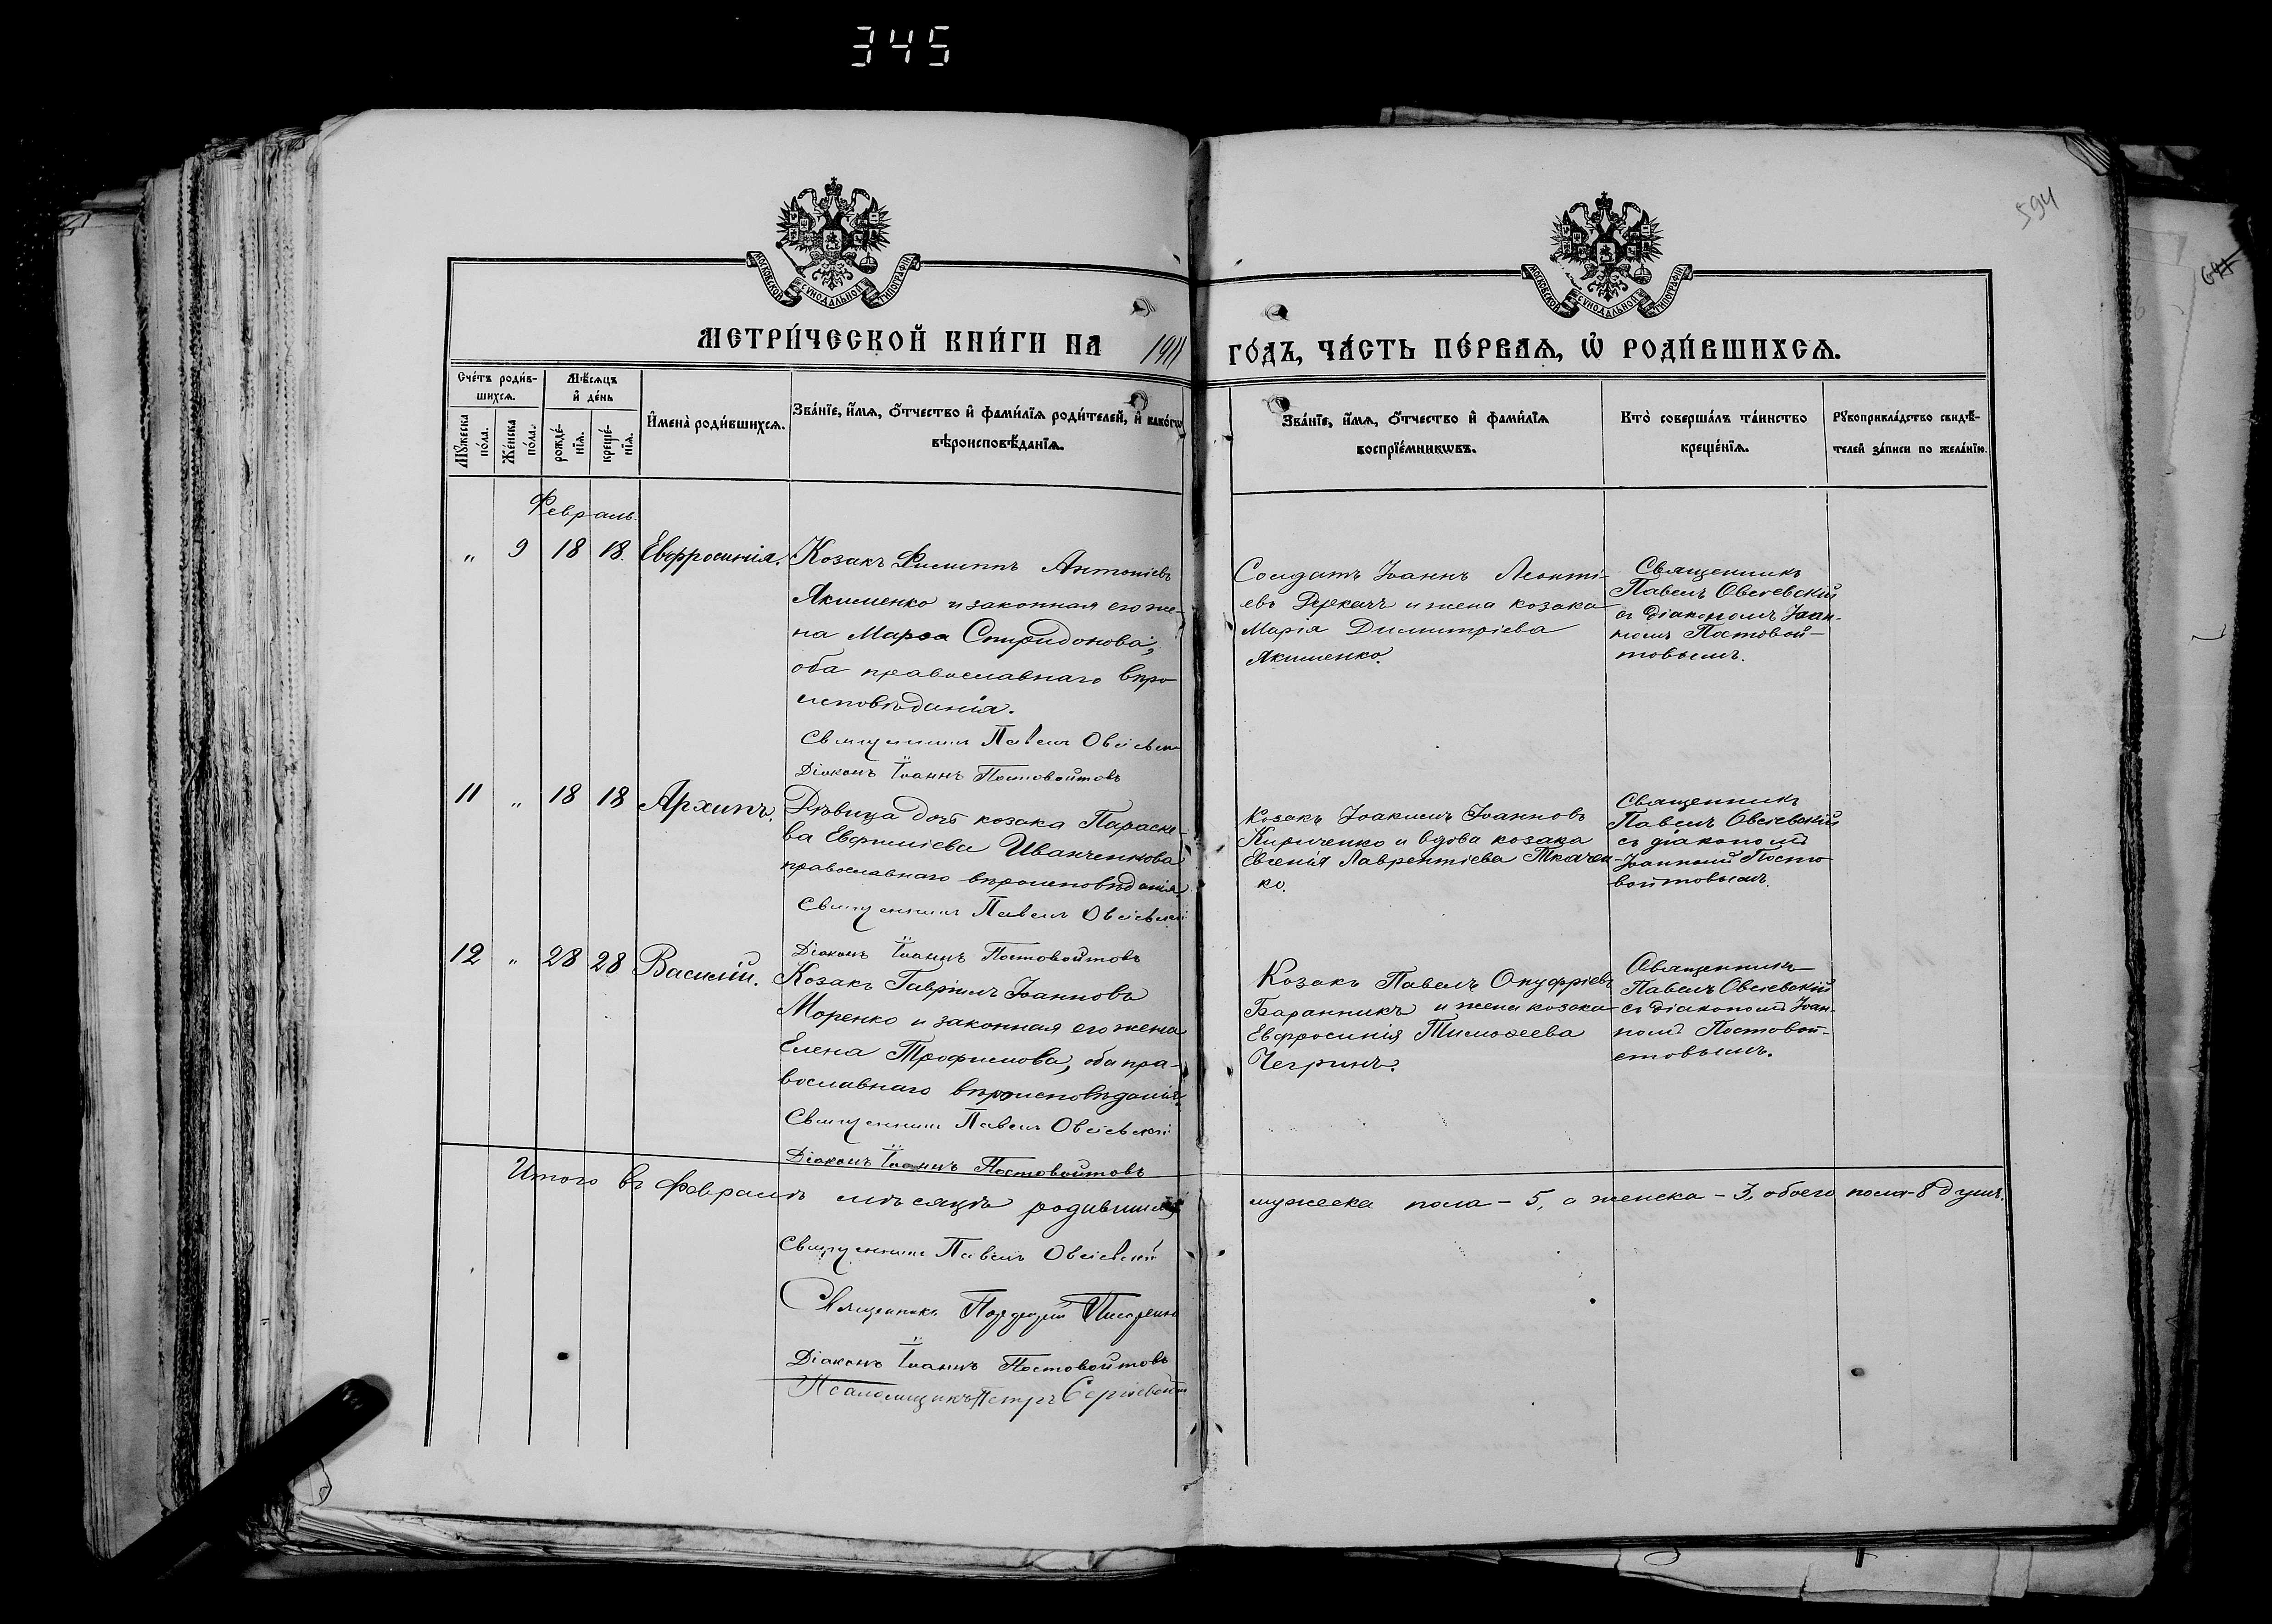 345
594
МОСКОВСКОЙ СѴНОДАЛЬНОЙ ТИПОГРАФІИ
МОСКОВСКОЙ СѴНОДАЛЬНОЙ ТИПОГРАФІИ
МЕТРИ́ЧЕСКОЙ КНИ́ГИ НА 1911 ГО́ДЪ, ЧА́СТЬ ПЕ́РВАѦ, Ѡ҆ РОДИ́ВШИХСѦ.
Сче́тъ роди́в-
шихсѧ.
Мѣ́сѧцъ
и҆ де́нь
Мꙋ́жеска
по́ла.
Же́нска
по́ла.
рожде́-
нїѧ.
креще́-
нїѧ.
И҆мена̀ роди́вшихсѧ.
Зва́нїе, и҆́мѧ, ѻ҆́тчество и҆ фами́лїѧ роди́телей, и҆ како́гѡ
вѣроисповѣ́данїѧ.
Зва́нїе, и҆́мѧ, ѻ҆́тчество и҆ фами́лїѧ
воспрїе́мникѡвъ.
Кто̀ соверша́лъ та́инство
креще́нїѧ.
Рꙋкоприкла́дство свидѣ́-
телей за́писи по жела́нїю.
Февраль.
" 9 18 18. Евфросинія.
Козакъ Филиппъ Антоніевъ
Якименко и законная его же-
на Марѳа Спиридонова,
оба православнаго вѣро
исповѣданія.
Священникъ Павелъ Овсіевскій
Діаконъ Іоаннъ Постовойтовъ
Солдатъ Іоаннъ Леонті-
евъ Деркачъ и жена козака
Марія Димитріева
Якименко.
Священникъ
Павелъ Овсіевскій
съ діакономъ Іоан-
номъ Постовой-
товымъ.
11 " 18 18 Архипъ.
Дѣвица дочь козака Параске-
ва Евфиміева Иванченкова
православнаго вѣроисповѣданія
Священникъ Павелъ Овсіевскій
Діаконъ Іоаннъ Постовойтовъ
Козакъ Іоакимъ Іоанновъ
Кириченко и вдова козака
Евгенія Лаврентіева Ткачен-
ко.
Священникъ
Павелъ Овсіевскій
съ діакономъ
Іоанномъ Посто
войтовымъ.
12 " 28 28 Василій.
Козакъ Гавріилъ Іоанновъ
Моренко и законная его жена
Елена Трофимова, оба пра-
вославнаго вѣроисповѣданія.
Священникъ Павелъ Овсіевскій
Діаконъ Іоаннъ Постовойтовъ
Козакъ Павелъ Онуфріевъ
Баранникъ и жена козака
Евфросинія Тимоѳеева
Чегринъ.
Священникъ
Павелъ Овсіевскій
съ діакономъ Іоан-
номъ Постовой-
товымъ.
Итого въ Февралѣ мѣсяцѣ родившихся
мужеска пола - 5, а женска - 3, обоего пола - 8 душъ.
Священникъ Павелъ Овсіевскій
Священникъ
Діаконъ Іоаннъ Постовойтовъ
Псаломщикъ Петръ